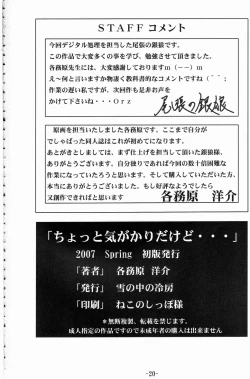 STAFF コメント
今回デジタル処理を担当した尾張の銀猿です。
この作品で大変多くの事を学び、勉強させて頂きました。
各務原先生には、大変感謝しておりますm（－－）m
え～何と言いますか物凄く教科書的なコメントですね（＾＾；
作業の遅い私ですが、次回作も是非お声を
かけて下さいね・・・Ｏｒｚ
尾張の銀猿
原画を担当いたしました各務原です。ここまで自分が
でしゃばった同人誌はこれが初めてになります。
あとがきとしましては、まず仕上げを担当して頂いた銀猿様、
ありがとうございます、自分独りであれば今回の数十倍困難な
作業になっていたろうと思います。そして購入していただいた方、
本当にありがとうございました。もし好評なようでしたら
又創作できればと思います
各務原 洋介
「ちょっと気がかりだけど・・・」
2007 Spring 初版発行
「著者」 各務原 洋介
「発行」 雪の中の冷房
「印刷」 ねこのしっぽ様
＊無断複製、転載を禁じます。
成人指定の作品ですので未成年者の購入は出来ません
-20-